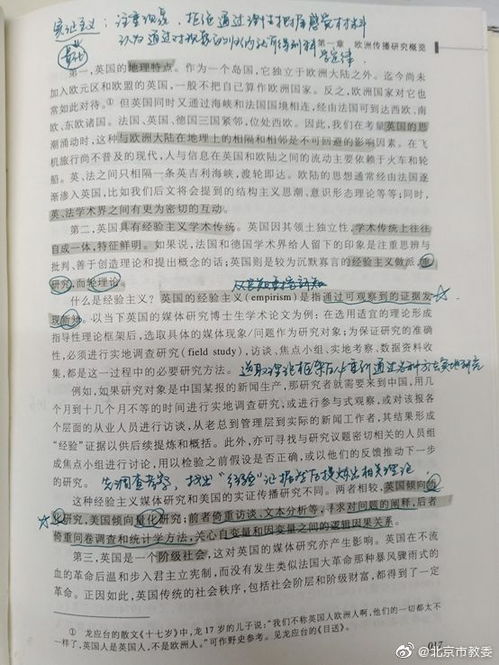 实证主义：注重现象，拒绝通过
认为通过对现象的归纳
第一章 欧洲传播研究概览
第一，英国的地理特点。作为一个岛国，它独立于欧洲大陆之外。迄今尚未
加入欧元区和欧盟的英国，一般不把自己算作欧洲国家。反之，欧洲国家对它也
常如此对待。①但英国同时又通过海峡和法国国境相连，经由法国可到达西欧、南
欧、东欧诸国。法国、英国、德国三国紧邻，位处西欧。因此，我们在考量英国的思
潮涌动时，这种与欧洲大陆在地理上的相隔和相邻是不可回避的影响因素。在飞
机旅行尚不普及的现代，人与信息在英国和欧陆之间的流动主要依赖于火车和轮
船。英、法之间只相隔一条英吉利海峡，渡轮即达。欧陆的思想通常经由法国逐
渐渗入英国，比如我们后文将会提到的结构主义思潮、意识形态理论等等；同时，
英、法学术界之间有更为密切的互动。
第二，英国具有经验主义学术传统。英国因其领土独立性，学术传统上往往
自成一体，特征鲜明。如果说，法国和德国学术界给人留下的印象是注重思辨与
批判、善于创造理论和提出概念的话；英国则是较为沉默寡言的经验主义做派，重
研究，而轻理论。
什么是经验主义？英国的经验主义（empirism）是指通过可观察到的证据发
现新知。以当下英国的媒体研究博士生学术论文为例：在选用适宜的理论形成
指导性理论框架后，选取具体的媒体现象/问题作为研究对象；为保证研究的准确
性，必须进行实地调查研究（field study），访谈、焦点小组、实地考察、数据资料收
集，都是这一过程中的必要研究方法。
例如，如果研究对象是中国某报的新闻生产，那研究者就需要来到中国，用几
个月到十几个月不等的时间进行实地调查研究，或进行参与式观察，或对该报各
个层面的从业人员进行访谈，从老总到管理层到实际的新闻工作者，其结果形成
“经验”证据以供后续提炼和概括。此外，亦可寻找与研究议题密切相关的人员组
成焦点小组进行讨论，用以检验之前假设是否正确，或以他们的反馈推动下一步
的研究。
这种经验主义媒体研究和美国的实证传播研究不同。两者相较，英国倾向质
化研究，美国倾向量化研究；前者倚重访谈、文本分析等，寻求对问题的阐释，后者
倚重问卷调查和统计学方法，关心自变量和因变量之间的逻辑因果关系。
第三，英国是一个阶级社会，这对英国的媒体研究亦产生影响。英国在不流
血的革命后温和步入君主立宪制，而没有发生类似法国大革命那种暴风骤雨式的
革命。正因如此，英国传统的社会秩序，包括社会阶层和阶级财富，都得到了一定
① 龙应台的散文《十七岁》中，龙17岁的儿子说：“我们不称英国人欧洲人啊，他们的一切都太不
一样了，英国人是英国人，不是欧洲人。”可作野史参考。见龙应台的《目送》。
017
@北京市教委